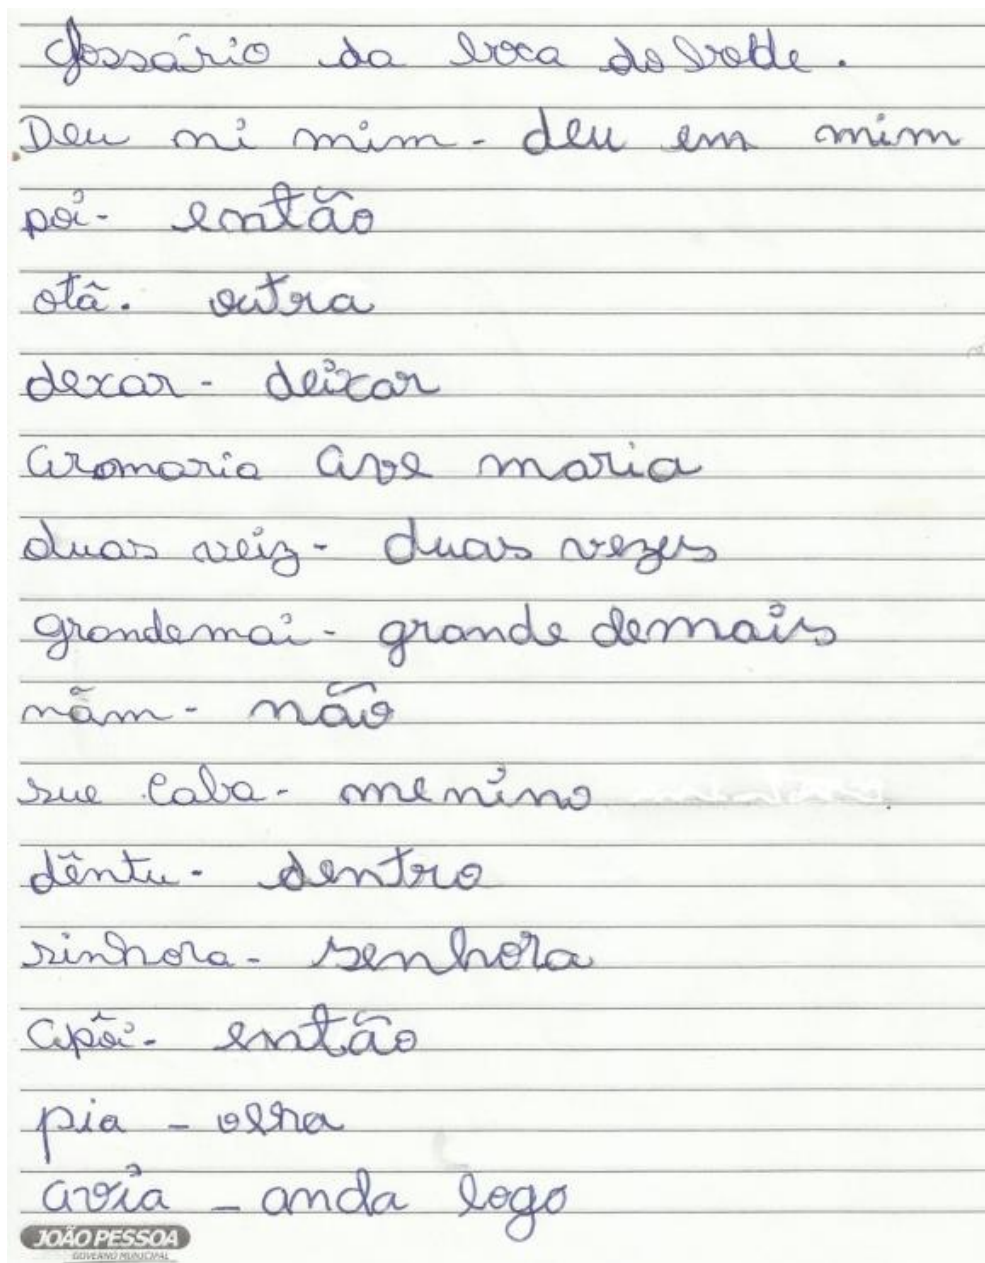 Glossário da boca do bode.
Deu ni mim - deu em mim
poi - então
otã. outra
dexar - deixar
aromaria ave maria
duas veiz - duas vezes
grandemai - grande demais
nãm - não
sue caba - menino
dêntu - dentro
sinhora - senhora
apôi - então
pia - olha
avia - anda logo
JOÃO PESSOA
GOVERNO MUNICIPAL